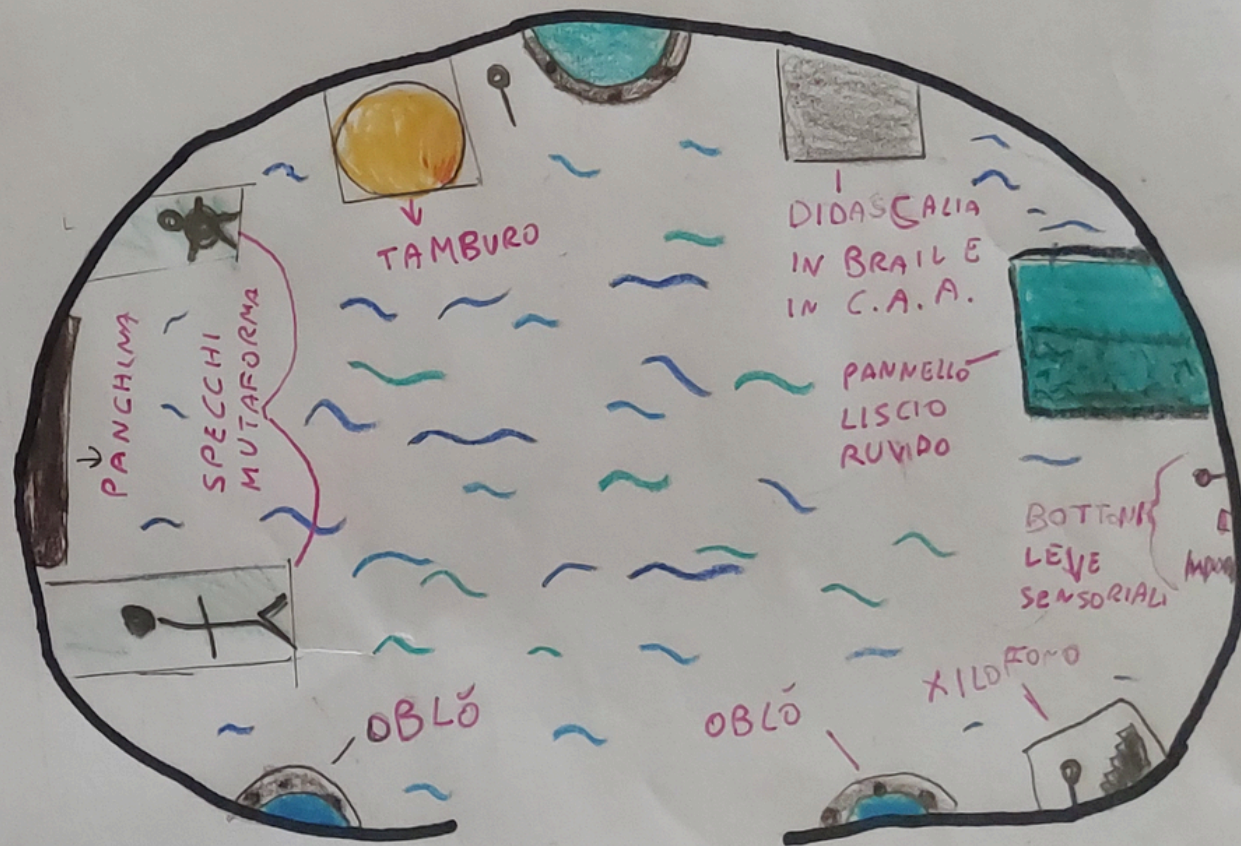 TAMBURO
DIDASCALIA
IN BRAIL E
IN C.A.A.
PANCHINA
SPECCHI
MUTAFORMA
PANNELLO
LISCIO
RUVIDO
BOTTONI
LEVE
SENSORIALI
XILOFONO
OBLÒ
OBLÒ